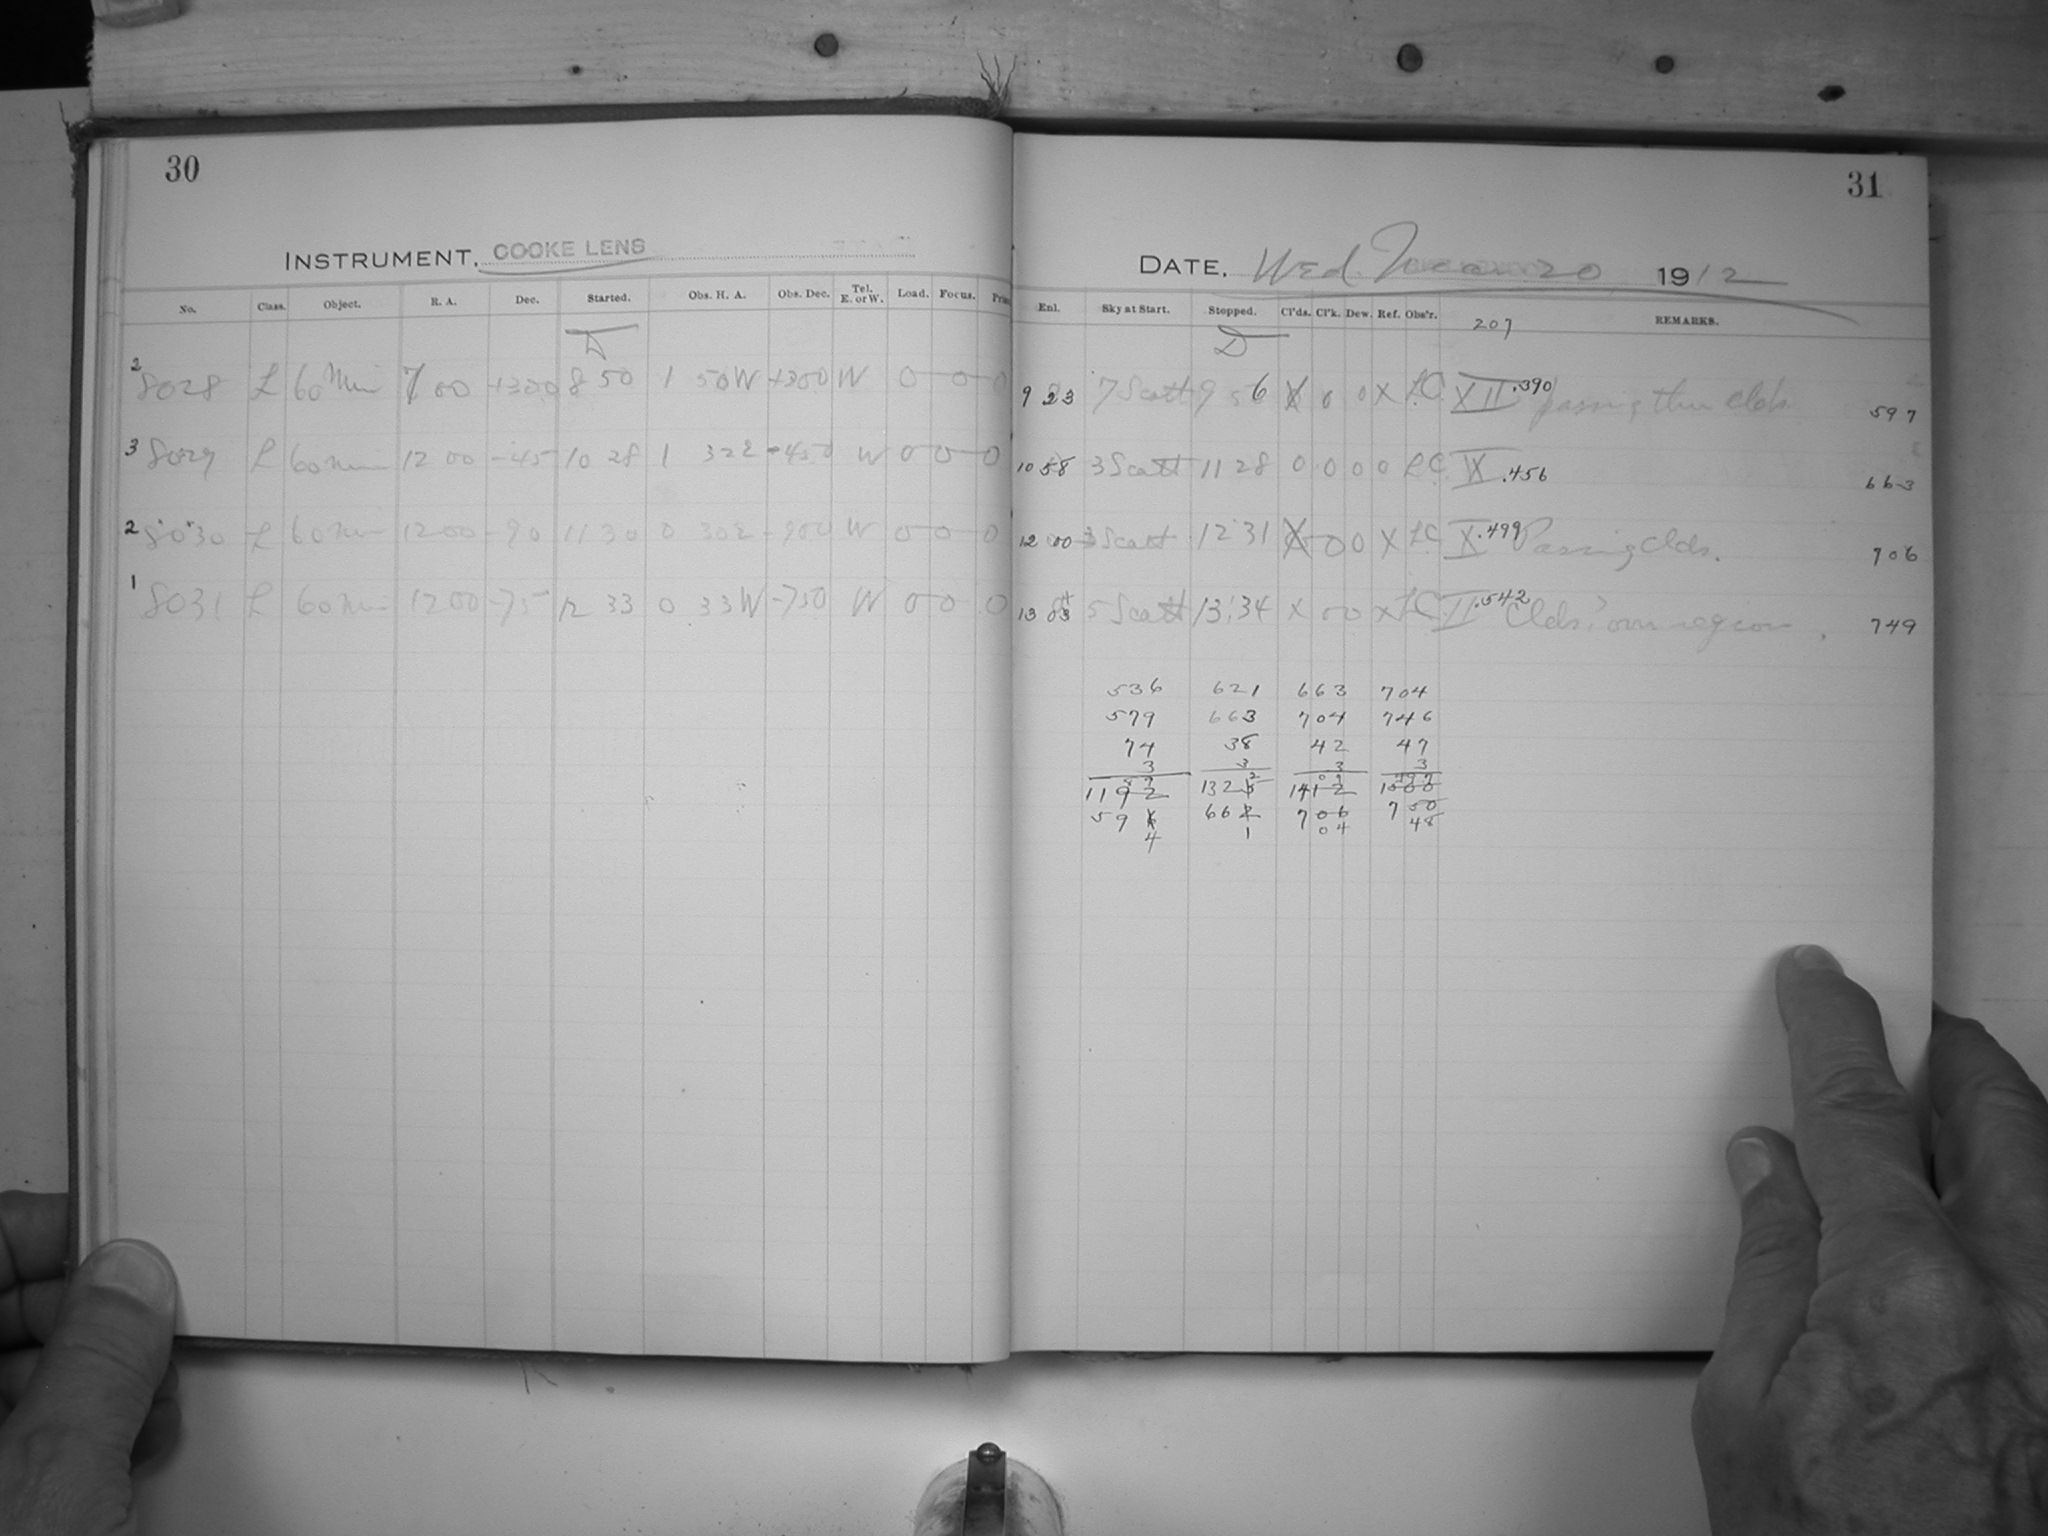 30
INSTRUMENT. COOKE LENS
No. Class. Object. R. A. Dec. Started. Obs. H. A. Obs. Dec. Tel. E. or W. Load. Focus.
2 8028 L 60 Min 7 00 +300 8 50 1 50W +300 W 0 0 0
3 8029 L 60 min 12 00 -45 10 28 1 32E -450 W 0 0 0
2 8030 L 60 min 12 00 -90 11 30 0 30E -900 W 0 0 0
1 8031 L 60 min 12 00 -75 12 33 0 33W -750 W 0 0 0
31
DATE. Wed. Mar 20 1912
Enl. Sky at Start. Stopped. Cl'ds. Cl'k. Dew. Ref. Obs'r. 207 REMARKS.
9 23 7 Scatt 9 56 X 0 0 X LC XII .390 passing thru Clds 597
10 58 3 Scatt 11 28 0 0 0 0 LC IX .456 663
12 00 3 Scatt 12 31 X 0 0 X LC X .499 Passing Clds. 706
13 03 5 Scatt 13 34 X 0 0 X LC II .542 Clds. over region. 749
536 621 663 704
579 663 704 746
74 38 42 47
3 3 3 3
1192 132 1412 1500
59 66 706 750
4 1 04 48